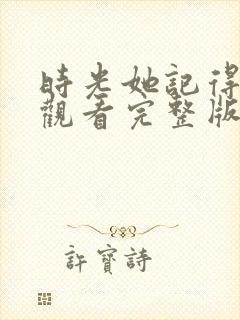 時光她記得
觀看完整版
許寶詩